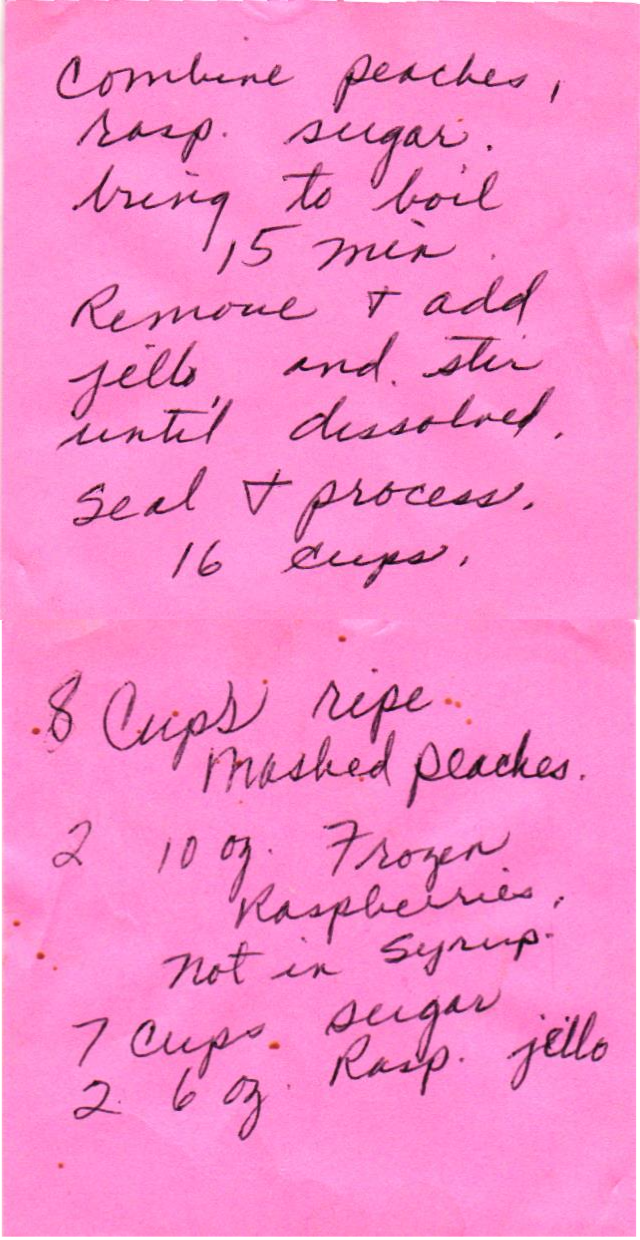 Combine peaches,
rasp. sugar.
bring to boil
15 min.
Remove & add
jello, and stir
until dissolved.
Seal & process.
16 cups.
8 Cups ripe
Mashed peaches.
2 10 oz. Frozen
Raspberries,
not in Syrup.
7 Cups sugar
2 6 oz. Rasp. jello